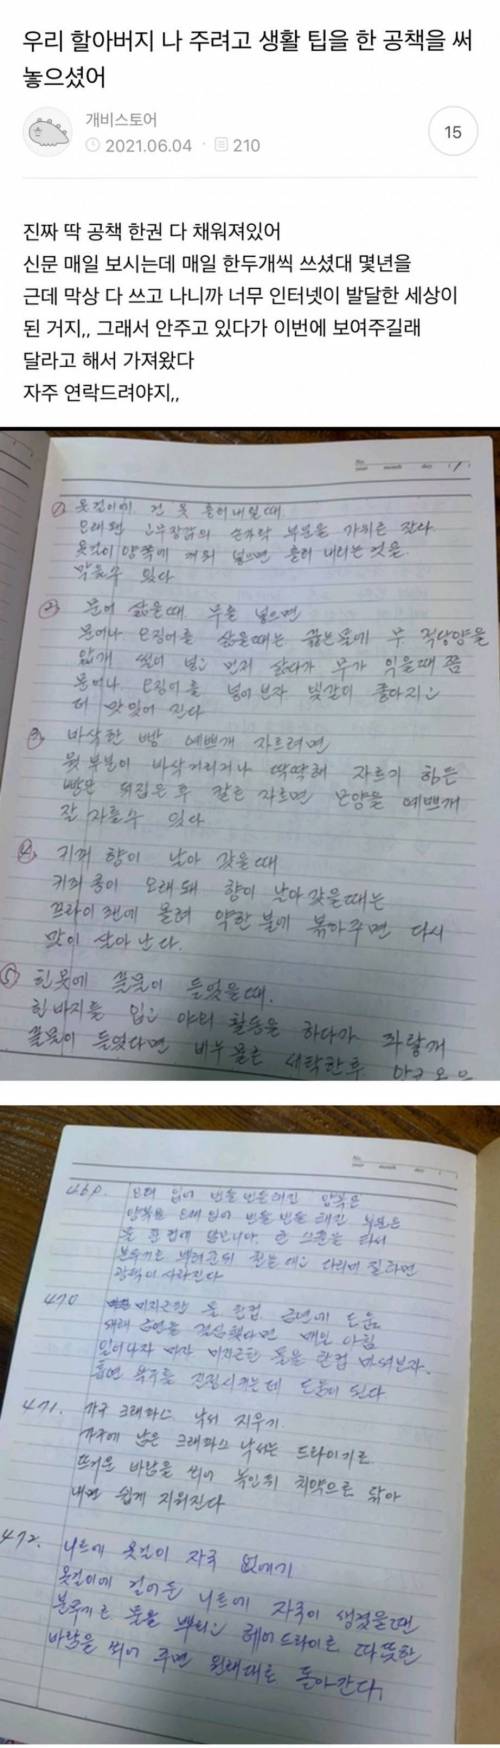 우리 할아버지 나 주려고 생활 팁을 한 공책을 써
놓으셨어
개비스토어
2021.06.04 · 210
15
진짜 딱 공책 한권 다 채워져있어
신문 매일 보시는데 매일 한두개씩 쓰셨대 몇년을
근데 막상 다 쓰고 나니까 너무 인터넷이 발달한 세상이
된 거지,, 그래서 안주고 있다가 이번에 보여주길래
달라고 해서 가져왔다
자주 연락드려야지,,
① 옷걸이에 건 옷 흘러내릴때.
오래된 고무장갑의 손가락 부분을 가위로 잘라
옷걸이 양쪽에 끼워 넣으면 흘러 내리는 것을
막을수 있다
② 문어 삶을때 무를 넣으면
문어나 오징어를 삶을때는 끓는물에 무 적당양을
얇개 썰어 넣고 먼저 삶다가 무가 익을때 쯤
문어나 오징어를 넣어보자 빛갈이 좋아지고
더 맛있어 진다
③ 바삭한 빵 예쁘개 자르려면
윗 부분이 바삭거리거나 딱딱해 자르기 힘든
빵은 뒤집은 후 칼로 자르면 모양을 예쁘개
잘 자를수 있다
④ 커피 향이 날아 갔을때
커피콩이 오래돼 향이 날아 갔을때는
프라이팬에 올려 약한 불에 볶아주면 다시
맛이 살아 난다.
⑤ 흰옷에 풀물이 들었을때.
흰바지를 입고 야외 활동을 하다가 파랗개
풀물이 들었다면 비누 물로 세탁한후
469. 오래 입어 번들번들해진 양복은
양복을 오래입어 번들번들 해진 부분은
광택이 사라진다
470 미지근한 물 한컵 금연에 도움
새해 금연을 결심했다면 매일 아침
일어나자 마자 미지근한 물을 한컵 마셔보자.
흡연 욕구를 진정시키는데 도움이 된다
471. 가구 크레파스 낙서 지우기
가구에 남은 크레파스 낙서는 드라이기로
뜨거운 바람을 쐬어 녹인뒤 치약으로 닦아
내면 쉽게 지워진다
472. 니트에 옷걸이 자국 없애기
옷걸이에 걸어둔 니트에 자국이 생겼을땐
분무기로 물을 뿌리고 헤어드라이로 따뜻한
바람을 쐬어 주면 원래대로 돌아간다.